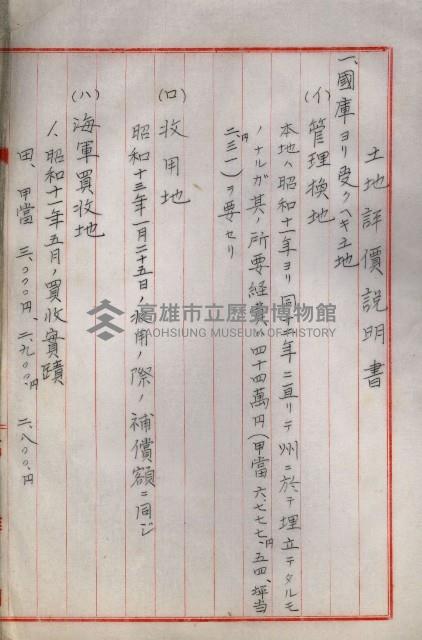 土地評價説明書
一、國庫ヨリ受クヘキ土地
(イ)管理換地
本地ハ昭和十一年ヨリ同十二年ニ亘リテ州ニ於テ埋立テタルモ
ノナルガ其ノ所要経費ハ四十四萬円(甲當六、七七七円、五四、坪當
二円、三一)ヲ要セリ
(ロ)收用地
昭和十三年一月二十五日ノ收用ノ際ノ補償額ニ同ジ
(ハ)海軍買收地
1、昭和十一年五月ノ買收實蹟
田、甲當 三、〇〇〇円、二、九〇〇円、二、八〇〇、円
高雄市立歷史博物館
KAOHSIUNG MUSEUM OF HISTORY